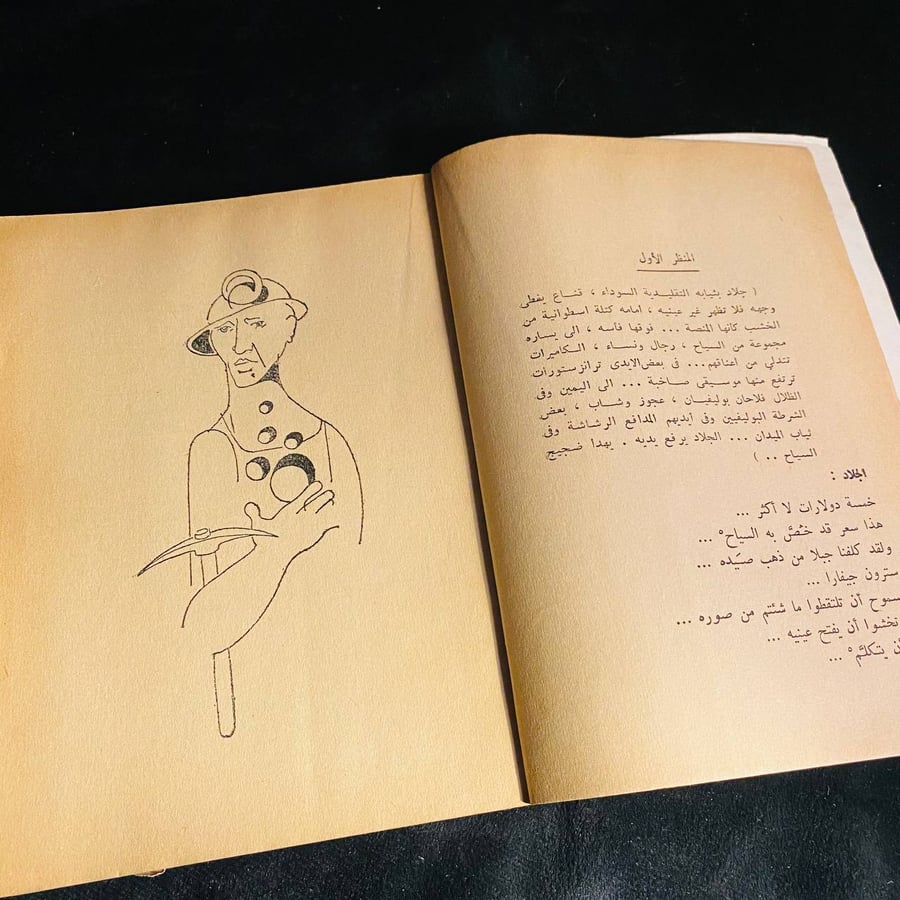 المنظر الأول
( جلاد بثيابه التقليدية السوداء ، قناع يغطى
وجهه فلا تظهر غير عينيه ، امامه كتلة اسطوانية من
الخشب كانها المنصة ... فوقها فاسه ، الى يساره
مجموعة من السياح ، رجال ونساء ، الكاميرات
تتدلي من اعناقهم... فى بعض الايدى ترانزستورات
ترتفع منها موسيقى صاخبة ... الى اليمين وفى
الظلال فلاحان بوليفيان ، عجوز وشاب ، بعض
الشرطة البوليفيين وفى أيديهم المدافع الرشاشة وفى
ثياب الميدان ... الجلاد يرفع يديه . يهدا ضجيج
السياح .. )
الجلاد :
خمسة دولارات لا أكثر ...
هذا سعر قد خُصَّ به السياحْ ...
ولقد كلفنا جبلا من ذهب صيَده ...
سترون جيفارا ...
سموح أن تلتقطوا ما شئتم من صوره ...
تخشوا أن يفتح عينيه ...
ن يتكلَّمْ ...